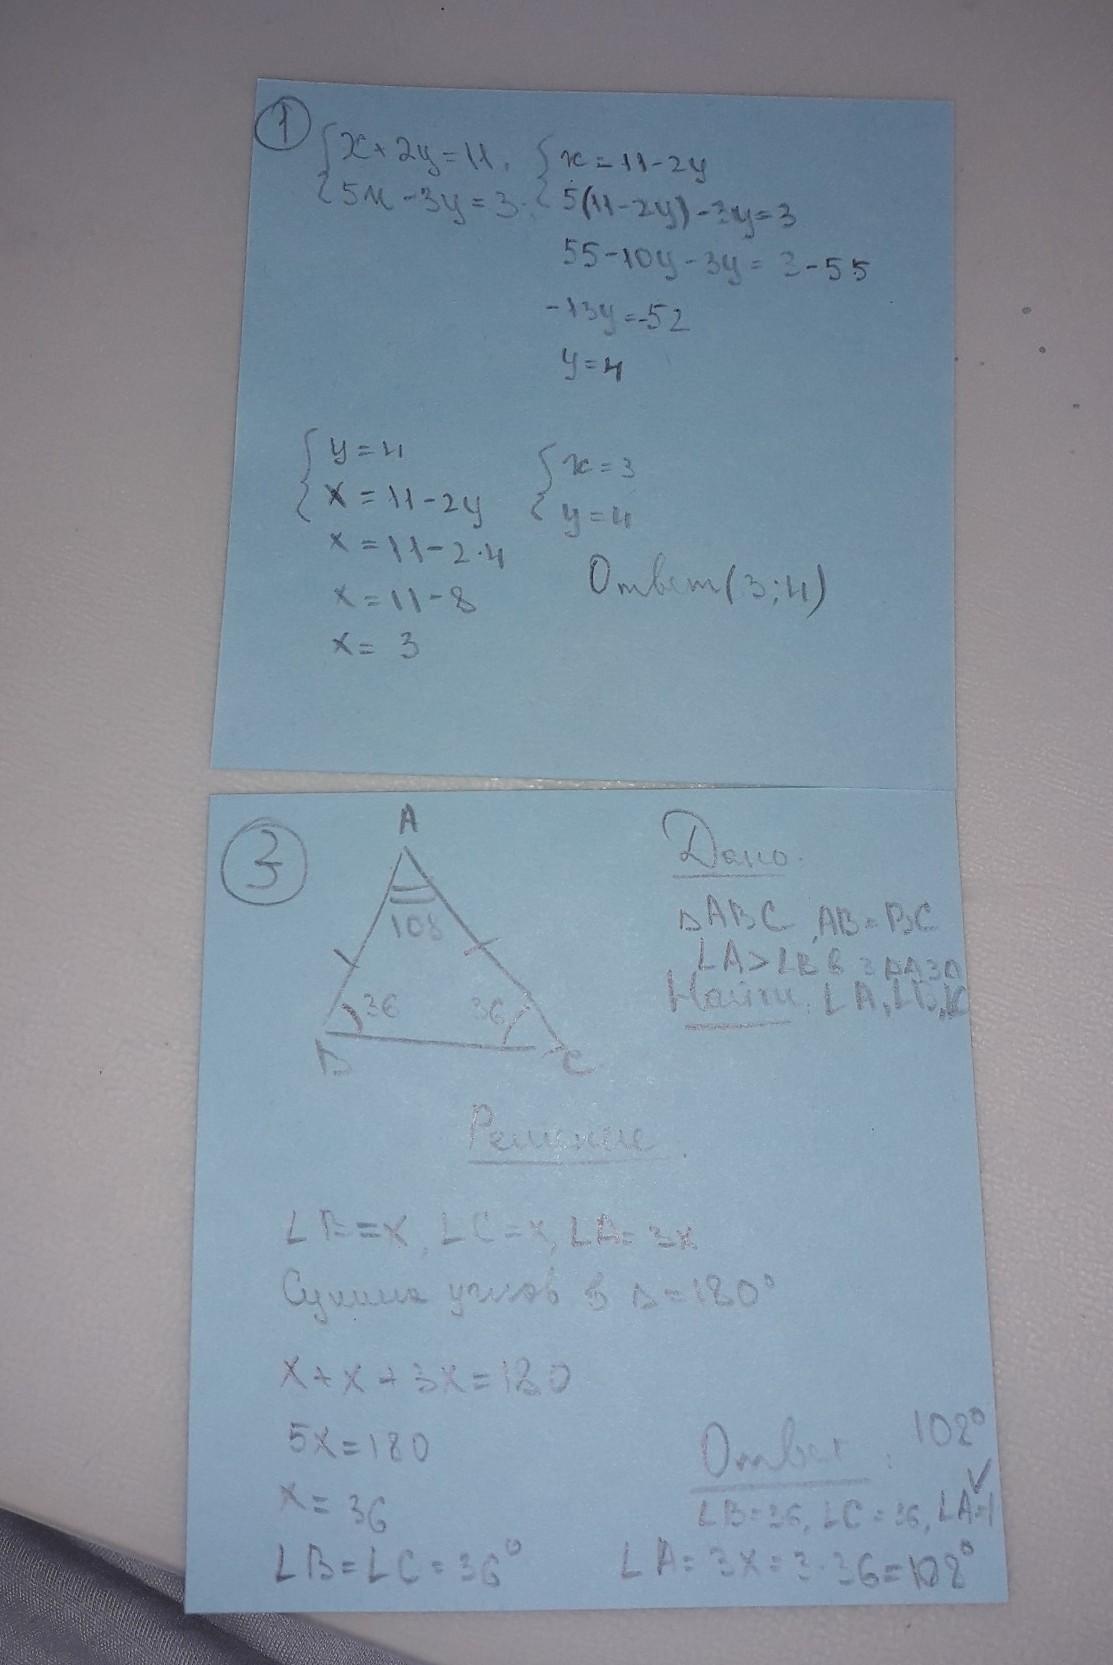 1
{x+2y=11, {x=11-2y
{5x-3y=3. {5(11-2y)-3y=3
55-10y-3y=3-55
-13y=-52
y=4
{y=4 {x=3
{x=11-2y {y=4
x=11-2·4
x=11-8
x=3
Ответ(3;4)
3
A
108
36 36
B C
Дано.
ΔABC, AB=BC
∠A>∠B в 3 раза
Найти: ∠A,∠B,∠C
Решение.
∠B=x, ∠C=x, ∠A=3x
Сумма углов в Δ=180°
x+x+3x=180
5x=180
x=36
∠B=∠C=36°
Ответ: 108°
∠B=36, ∠C=36, ∠A=1
∠A=3x=3·36=108°